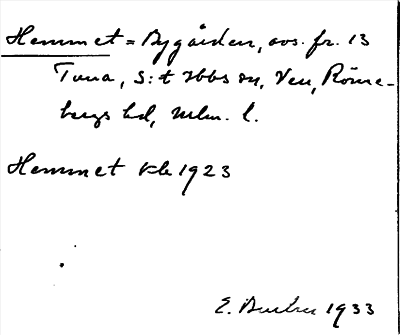 Hemmet = Bygården, avs. fr. 13
Tuna, S:t Ibbs sn, Ven, Rönne-
bergs hd, Mlm. l.
Hemmet kb 1923
E. 1933